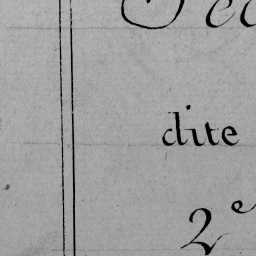 dite
2e